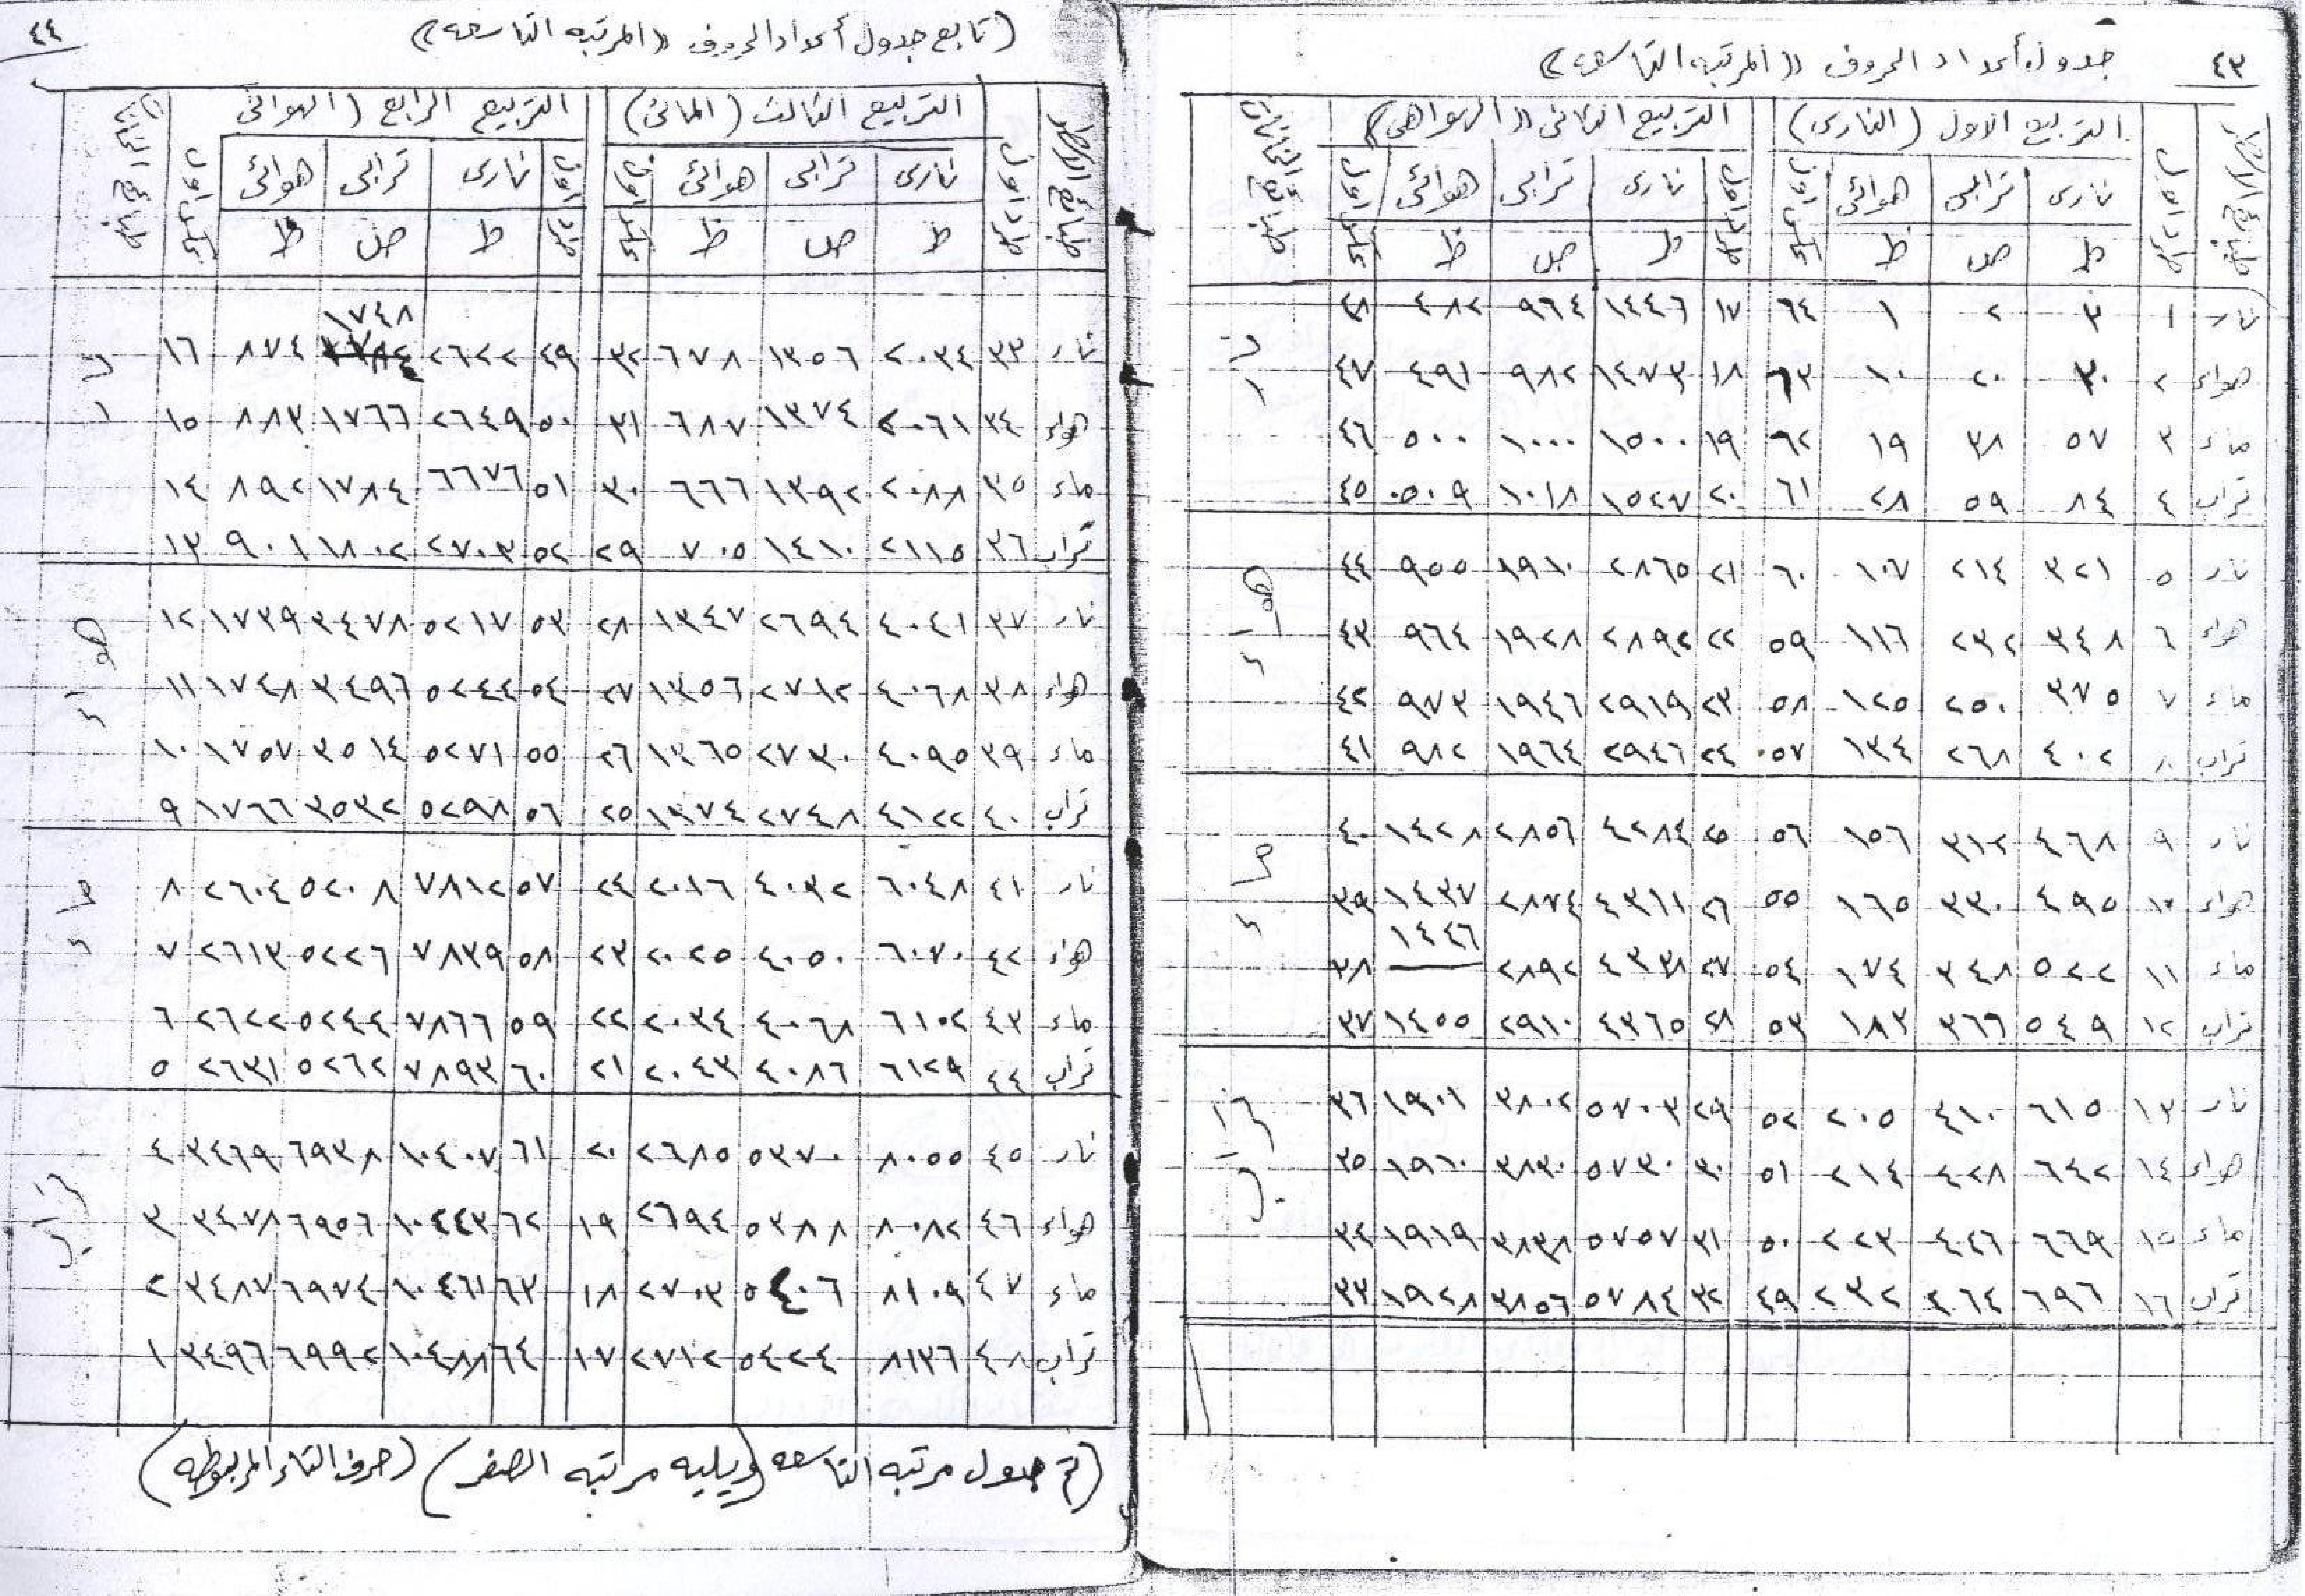 ٤٣
جدول أعداد الحروف «المرتبه التاسعه»
التربيع الاول (النارى) التربيع الثانى «الهوائى» طبائع الخانات
نارى ترابى هوائى نارى ترابى هوائى
ط ص ظ ط ص ظ
نار ١ ٣ ٢ ١ ٦٤ ١٧ ١٤٤٦ ٩٦٤ ٤٨٢ ٤٨
هواء ٢ ٣٠ ٢٠ ١٠ ٦٣ ١٨ ١٤٧٣ ٩٨٢ ٤٩١ ٤٧
ماء ٣ ٥٧ ٣٨ ١٩ ٦٢ ١٩ ١٥٠٠ ١٠٠٠ ٥٠٠ ٤٦
تراب ٤ ٨٤ ٥٩ ٢٨ ٦١ ٢٠ ١٥٢٧ ١٠١٨ ٥٠٩ ٤٥
نار
نار ٥ ٣٢١ ٢١٤ ١٠٧ ٦٠ ٢١ ٢٨٦٥ ١٩١٠ ٩٥٥ ٤٤
هواء ٦ ٣٤٨ ٢٣٢ ١١٦ ٥٩ ٢٢ ٢٨٩٢ ١٩٢٨ ٩٦٤ ٤٣
ماء ٧ ٣٧٥ ٢٥٠ ١٢٥ ٥٨ ٢٣ ٢٩١٩ ١٩٤٦ ٩٧٣ ٤٢
تراب ٨ ٤٠٢ ٢٦٨ ١٣٤ ٥٧ ٢٤ ٢٩٤٦ ١٩٦٤ ٩٨٢ ٤١
هواء
نار ٩ ٤٦٨ ٣١٢ ١٥٦ ٥٦ ٢٥ ٤٢٨٤ ٢٨٥٦ ١٤٢٨ ٤٠
هواء ١٠ ٤٩٥ ٣٣٠ ١٦٥ ٥٥ ٢٦ ٤٣١١ ٢٨٧٤ ١٤٣٧ ٣٩
ماء ١١ ٥٢٢ ٣٤٨ ١٧٤ ٥٤ ٢٧ ٤٣٣٨ ٢٨٩٢ ١٤٤٦ ٣٨
تراب ١٢ ٥٤٩ ٣٦٦ ١٨٣ ٥٣ ٢٨ ٤٣٦٥ ٢٩١٠ ١٤٥٥ ٣٧
ماء
نار ١٣ ٦١٥ ٤١٠ ٢٠٥ ٥٢ ٢٩ ٥٧٠٣ ٣٨٠٢ ١٩٠١ ٣٦
هواء ١٤ ٦٤٢ ٤٢٨ ٢١٤ ٥١ ٣٠ ٥٧٣٠ ٣٨٣٠ ١٩١٠ ٣٥
ماء ١٥ ٦٦٩ ٤٤٦ ٢٢٣ ٥٠ ٣١ ٥٧٥٧ ٣٨٣٨ ١٩١٩ ٣٤
تراب ١٦ ٦٩٦ ٤٦٤ ٢٣٢ ٤٩ ٣٢ ٥٧٨٤ ٣٨٥٦ ١٩٢٨ ٣٣
تراب
٤٤
(تابع جدول أعداد الحروف «المرتبه التاسعه»)
التربيع الثالث (المائى) التربيع الرابع (الهوائى
نارى ترابى هوائى نارى ترابى هوائى
ط ص ظ ط ص ظ
نار ٣٣ ٢٠٣٤ ١٣٥٦ ٦٧٨ ٣٢ ٤٩ ٢٦٢٢ ١٧٤٨ ٨٧٤ ١٦
هواء ٣٤ ٢٠٦١ ١٣٧٤ ٦٨٧ ٣١ ٥٠ ٢٦٤٩ ١٧٦٦ ٨٨٣ ١٥
ماء ٣٥ ٢٠٨٨ ١٣٩٢ ٦٦٦ ٣٠ ٥١ ٦٦٧٦ ١٧٨٤ ٨٩٢ ١٤
تراب ٣٦ ٢١١٥ ١٤١٠ ٧٠٥ ٢٩ ٥٢ ٢٧٠٣ ١٨٠٢ ٩٠١ ١٣
نار
نار ٣٧ ٤٠٤١ ٢٦٩٤ ١٣٤٧ ٢٨ ٥٣ ٥٢١٧ ٣٤٧٨ ١٧٣٩ ١٢
هواء ٣٨ ٤٠٦٨ ٢٧١٢ ١٣٥٦ ٢٧ ٥٤ ٥٢٤٤ ٣٤٩٦ ١٧٤٨ ١١
ماء ٣٩ ٤٠٩٥ ٢٧٣٠ ١٣٦٥ ٢٦ ٥٥ ٥٢٧١ ٣٥١٤ ١٧٥٧ ١٠
تراب ٤٠ ٤١٢٢ ٢٧٤٨ ١٣٧٤ ٢٥ ٥٦ ٥٢٩٨ ٣٥٣٢ ١٧٦٦ ٩
هواء
نار ٤١ ٦٠٤٨ ٤٠٣٢ ٢٠١٦ ٢٤ ٥٧ ٧٨١٢ ٥٢٠٨ ٢٦٠٤ ٨
هواء ٤٢ ٦٠٧٠ ٤٠٥٠ ٢٠٢٥ ٢٣ ٥٨ ٧٨٣٩ ٥٢٢٦ ٢٦١٣ ٧
ماء ٤٣ ٦١٠٢ ٤٠٦٨ ٢٠٣٤ ٢٢ ٥٩ ٧٨٦٦ ٥٢٤٤ ٢٦٢٢ ٦
تراب ٤٤ ٦١٢٩ ٤٠٨٦ ٢٠٤٣ ٢١ ٦٠ ٧٨٩٣ ٥٢٦٢ ٢٦٣١ ٥
ماء
نار ٤٥ ٨٠٥٥ ٥٣٧٠ ٢٦٨٥ ٢٠ ٦١ ١٠٤٠٧ ٦٩٣٨ ٣٤٦٩ ٤
هواء ٤٦ ٨٠٨٢ ٥٣٨٨ ٢٦٩٤ ١٩ ٦٢ ١٠٤٤٣ ٦٩٥٦ ٣٤٧٨ ٣
ماء ٤٧ ٨١٠٩ ٥٤٠٦ ٢٧٠٣ ١٨ ٦٣ ١٠٤٦١ ٦٩٧٤ ٣٤٨٧ ٢
تراب ٤٨ ٨١٣٦ ٥٤٢٤ ٢٧١٢ ١٧ ٦٤ ١٠٤٨٨ ٦٩٩٢ ٣٤٩٦ ١
تراب
(تم جدول مرتبه التاسعه (ويليه مراتبه الصفر) (حرف التاء المربوطه)